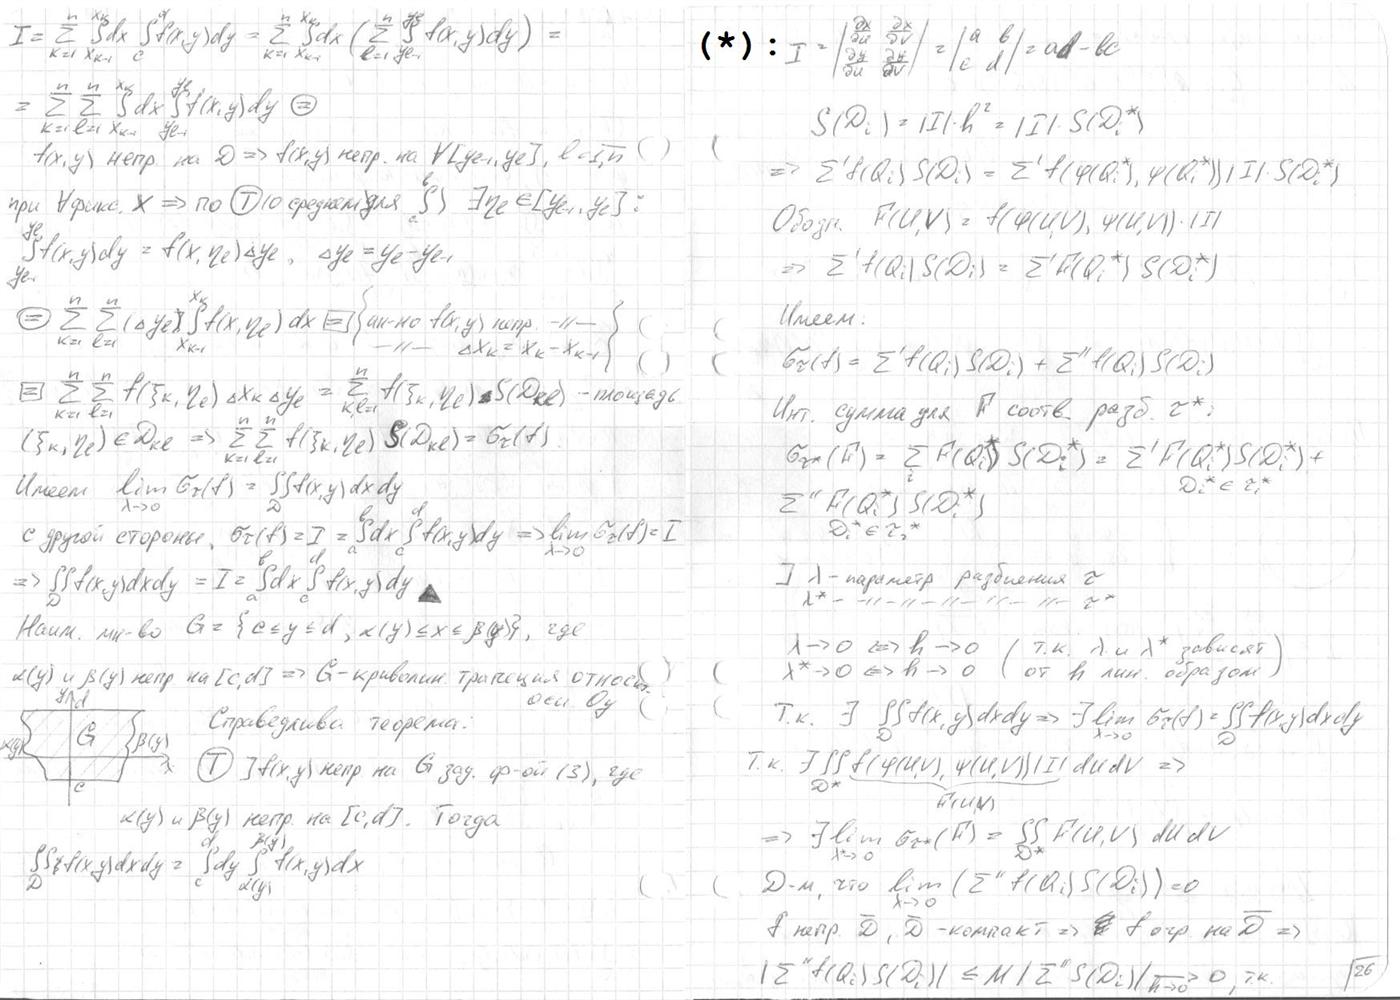 I = Σ_{k=1}^{n} ∫_{x_{k-1}}^{x_k} dx ∫_c^d f(x,y)dy = Σ_{k=1}^{n} ∫_{x_{k-1}}^{x_k} dx (Σ_{l=1}^{n} ∫_{y_{l-1}}^{y_l} f(x,y)dy) =
= Σ_{k=1}^{n} Σ_{l=1}^{n} ∫_{x_{k-1}}^{x_k} dx ∫_{y_{l-1}}^{y_l} f(x,y)dy ⊜
f(x,y) непр. на D => f(x,y) непр. на ∀[y_{l-1}, y_l], l=1,n
при ∀ фикс. x => по Ⓣ (о среднем для ∫_a^b) ∃η_l ∈ [y_{l-1}, y_l]:
∫_{y_{l-1}}^{y_l} f(x,y)dy = f(x, η_l)Δy_l, Δy_l = y_l - y_{l-1}
⊜ Σ_{k=1}^{n} Σ_{l=1}^{n} (Δy_l) ∫_{x_{k-1}}^{x_k} f(x, η_l) dx [=] {ан-но f(x,y) непр. -//-
-//- Δx_k = x_k - x_{k-1}}
[=] Σ_{k=1}^{n} Σ_{l=1}^{n} f(ξ_k, η_l) Δx_k Δy_l = Σ_{k,l=1}^{n} f(ξ_k, η_l) S(D_{kl}) - площадь
(ξ_k, η_l) ∈ D_{kl} => Σ_{k=1}^{n} Σ_{l=1}^{n} f(ξ_k, η_l) S(D_{kl}) = σ_τ(f).
Имеем lim_{λ→0} σ_τ(f) = ∬_D f(x,y)dxdy
с другой стороны, σ_τ(f) = I = ∫_a^b dx ∫_c^d f(x,y)dy => lim_{λ→0} σ_τ(f) = I
=> ∬_D f(x,y)dxdy = I = ∫_a^b dx ∫_c^d f(x,y)dy ▲
Наим. мн-во G = {c ≤ y ≤ d, α(y) ≤ x ≤ β(y)}, где
α(y) и β(y) непр на [c,d] => G - криволин. трапеция относит.
оси Oy
y d
α(y) G β(y) x
c
Справедлива теорема:
Ⓣ ∃ f(x,y) непр на G зад. ф-ой (3), где
α(y) и β(y) непр. на [c,d]. Тогда
∬_D f(x,y)dxdy = ∫_c^d dy ∫_{α(y)}^{β(y)} f(x,y)dx
(*): I = |∂x/∂u ∂x/∂v; ∂y/∂u ∂y/∂v| = |a b; c d| = ad - bc
S(D_i) = |I|·h² = |I|·S(D_i*)
=> Σ' f(Q_i) S(D_i) = Σ' f(φ(Q_i*), ψ(Q_i*)) |I|·S(D_i*)
Обозн. F(U,V) = f(φ(U,V), ψ(U,V))·|I|
=> Σ' f(Q_i) S(D_i) = Σ' F(Q_i*) S(D_i*)
Имеем:
σ_τ(f) = Σ' f(Q_i) S(D_i) + Σ'' f(Q_i) S(D_i)
Инт. сумма для F соотв. разб. τ*:
σ_{τ*}(F) = Σ_i F(Q_i*) S(D_i*) = Σ'_{D_i* ∈ τ_1*} F(Q_i*) S(D_i*) +
Σ''_{D_i* ∈ τ_2*} F(Q_i*) S(D_i*)
∃ λ - параметр разбиения τ
λ* - -//- -//- -//- -//- τ*
λ→0 <=> h→0 (т.к. λ и λ* зависят
λ*→0 <=> h→0 от h лин. образом)
Т.к. ∃ ∬_D f(x,y)dxdy => ∃ lim_{λ→0} σ_τ(f) = ∬_D f(x,y)dxdy
Т.к. ∃ ∬_{D*} f(φ(U,V), ψ(U,V))|I| dUdV =>
F(U,V)
=> ∃ lim_{λ*→0} σ_{τ*}(F) = ∬_{D*} F(U,V) dUdV
Д-м, что lim_{λ→0} (Σ'' f(Q_i) S(D_i)) = 0
f непр. D̄, D̄ - компакт => f огр. на D̄ =>
|Σ'' f(Q_i) S(D_i)| ≤ M |Σ'' S(D_i)| →_{h→0} 0, т.к.
26